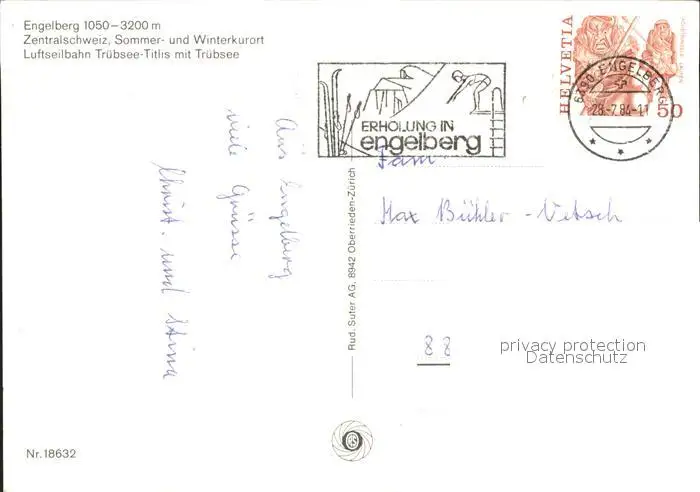 Engelberg 1050–3200 m
Zentralschweiz, Sommer- und Winterkurort
Luftseilbahn Trübsee-Titlis mit Trübsee
Aus Engelberg
viele Grüsse
Christ. und Stina
Nr.18632
Rud. Suter AG, 8942 Oberrieden-Zürich
ERHOLUNG IN
engelberg
HELVETIA
50
6390 ENGELBERG
28.-7.84-11
Fam.
Max Bühler - Vetsch
88
privacy protection
Datenschutz